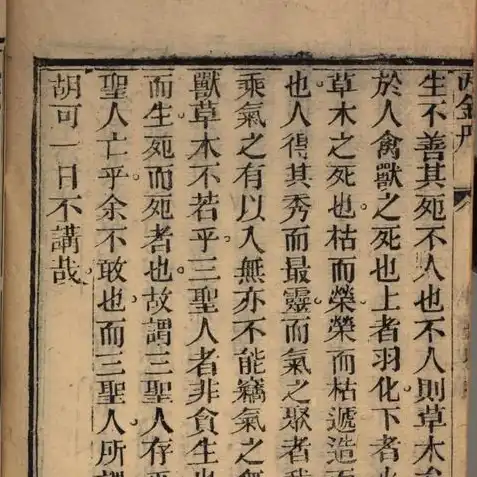 金丹
生不善其死不人也不人則草木
於人禽獸之死也上者羽化。下者
草木之死也。枯而榮榮而枯遞造
也。人得其秀而最靈。而氣之聚者
乘氣之有以入無亦不能竊氣之無
獸草木不若乎。三聖人者非貪生也
而生。死而死者也。故謂三聖人存乎
聖人亡乎。余不敢也。而三聖人所
胡可一日不講哉。